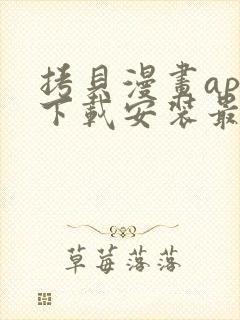 拷貝漫畫ap
下載安裝最
草莓落落